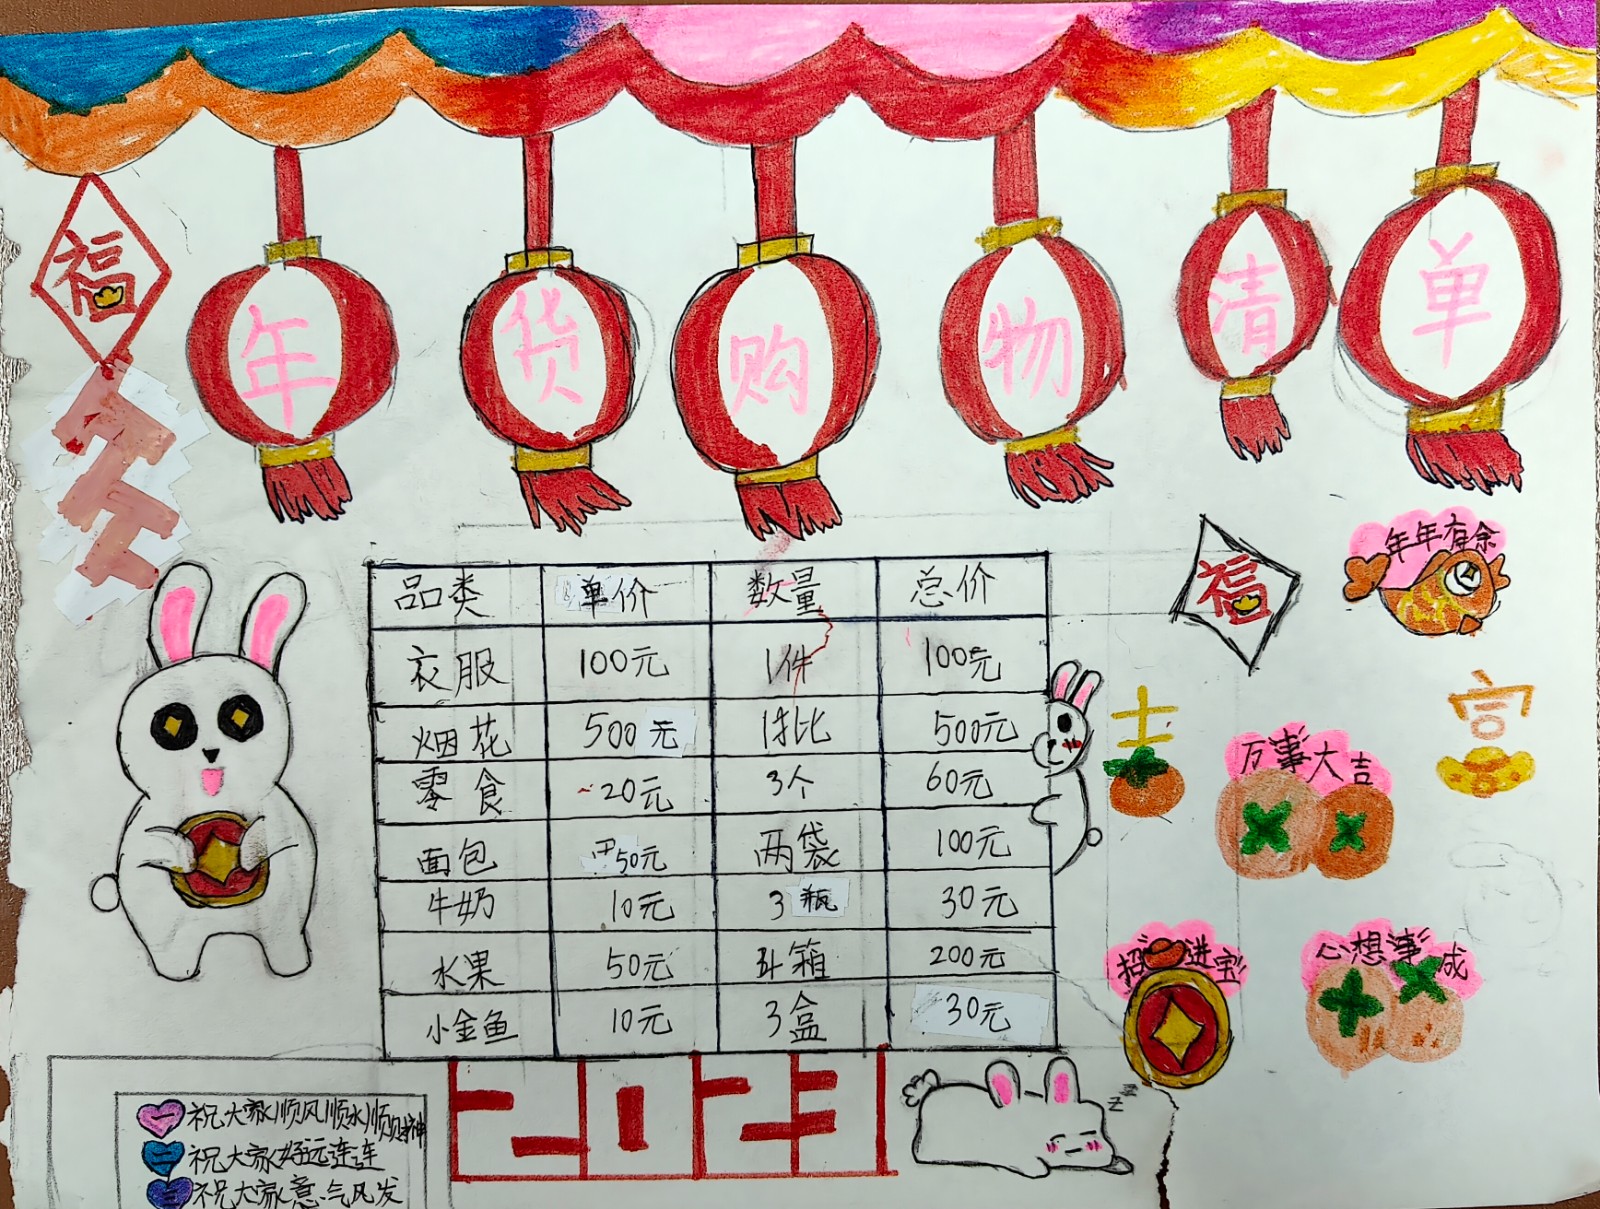 福
年货购物清单
品类 单价 数量 总价
衣服 100元 1件 100元
烟花 500元 1批 500元
零食 20元 3个 60元
面包 50元 两袋 100元
牛奶 10元 3瓶 30元
水果 50元 4箱 200元
小金鱼 10元 3盒 30元
福
年年有余
吉
万事大吉
富
招进宝
心想事成
一 祝大家顺风顺水顺财神
二 祝大家好运连连
三 祝大家意气风发